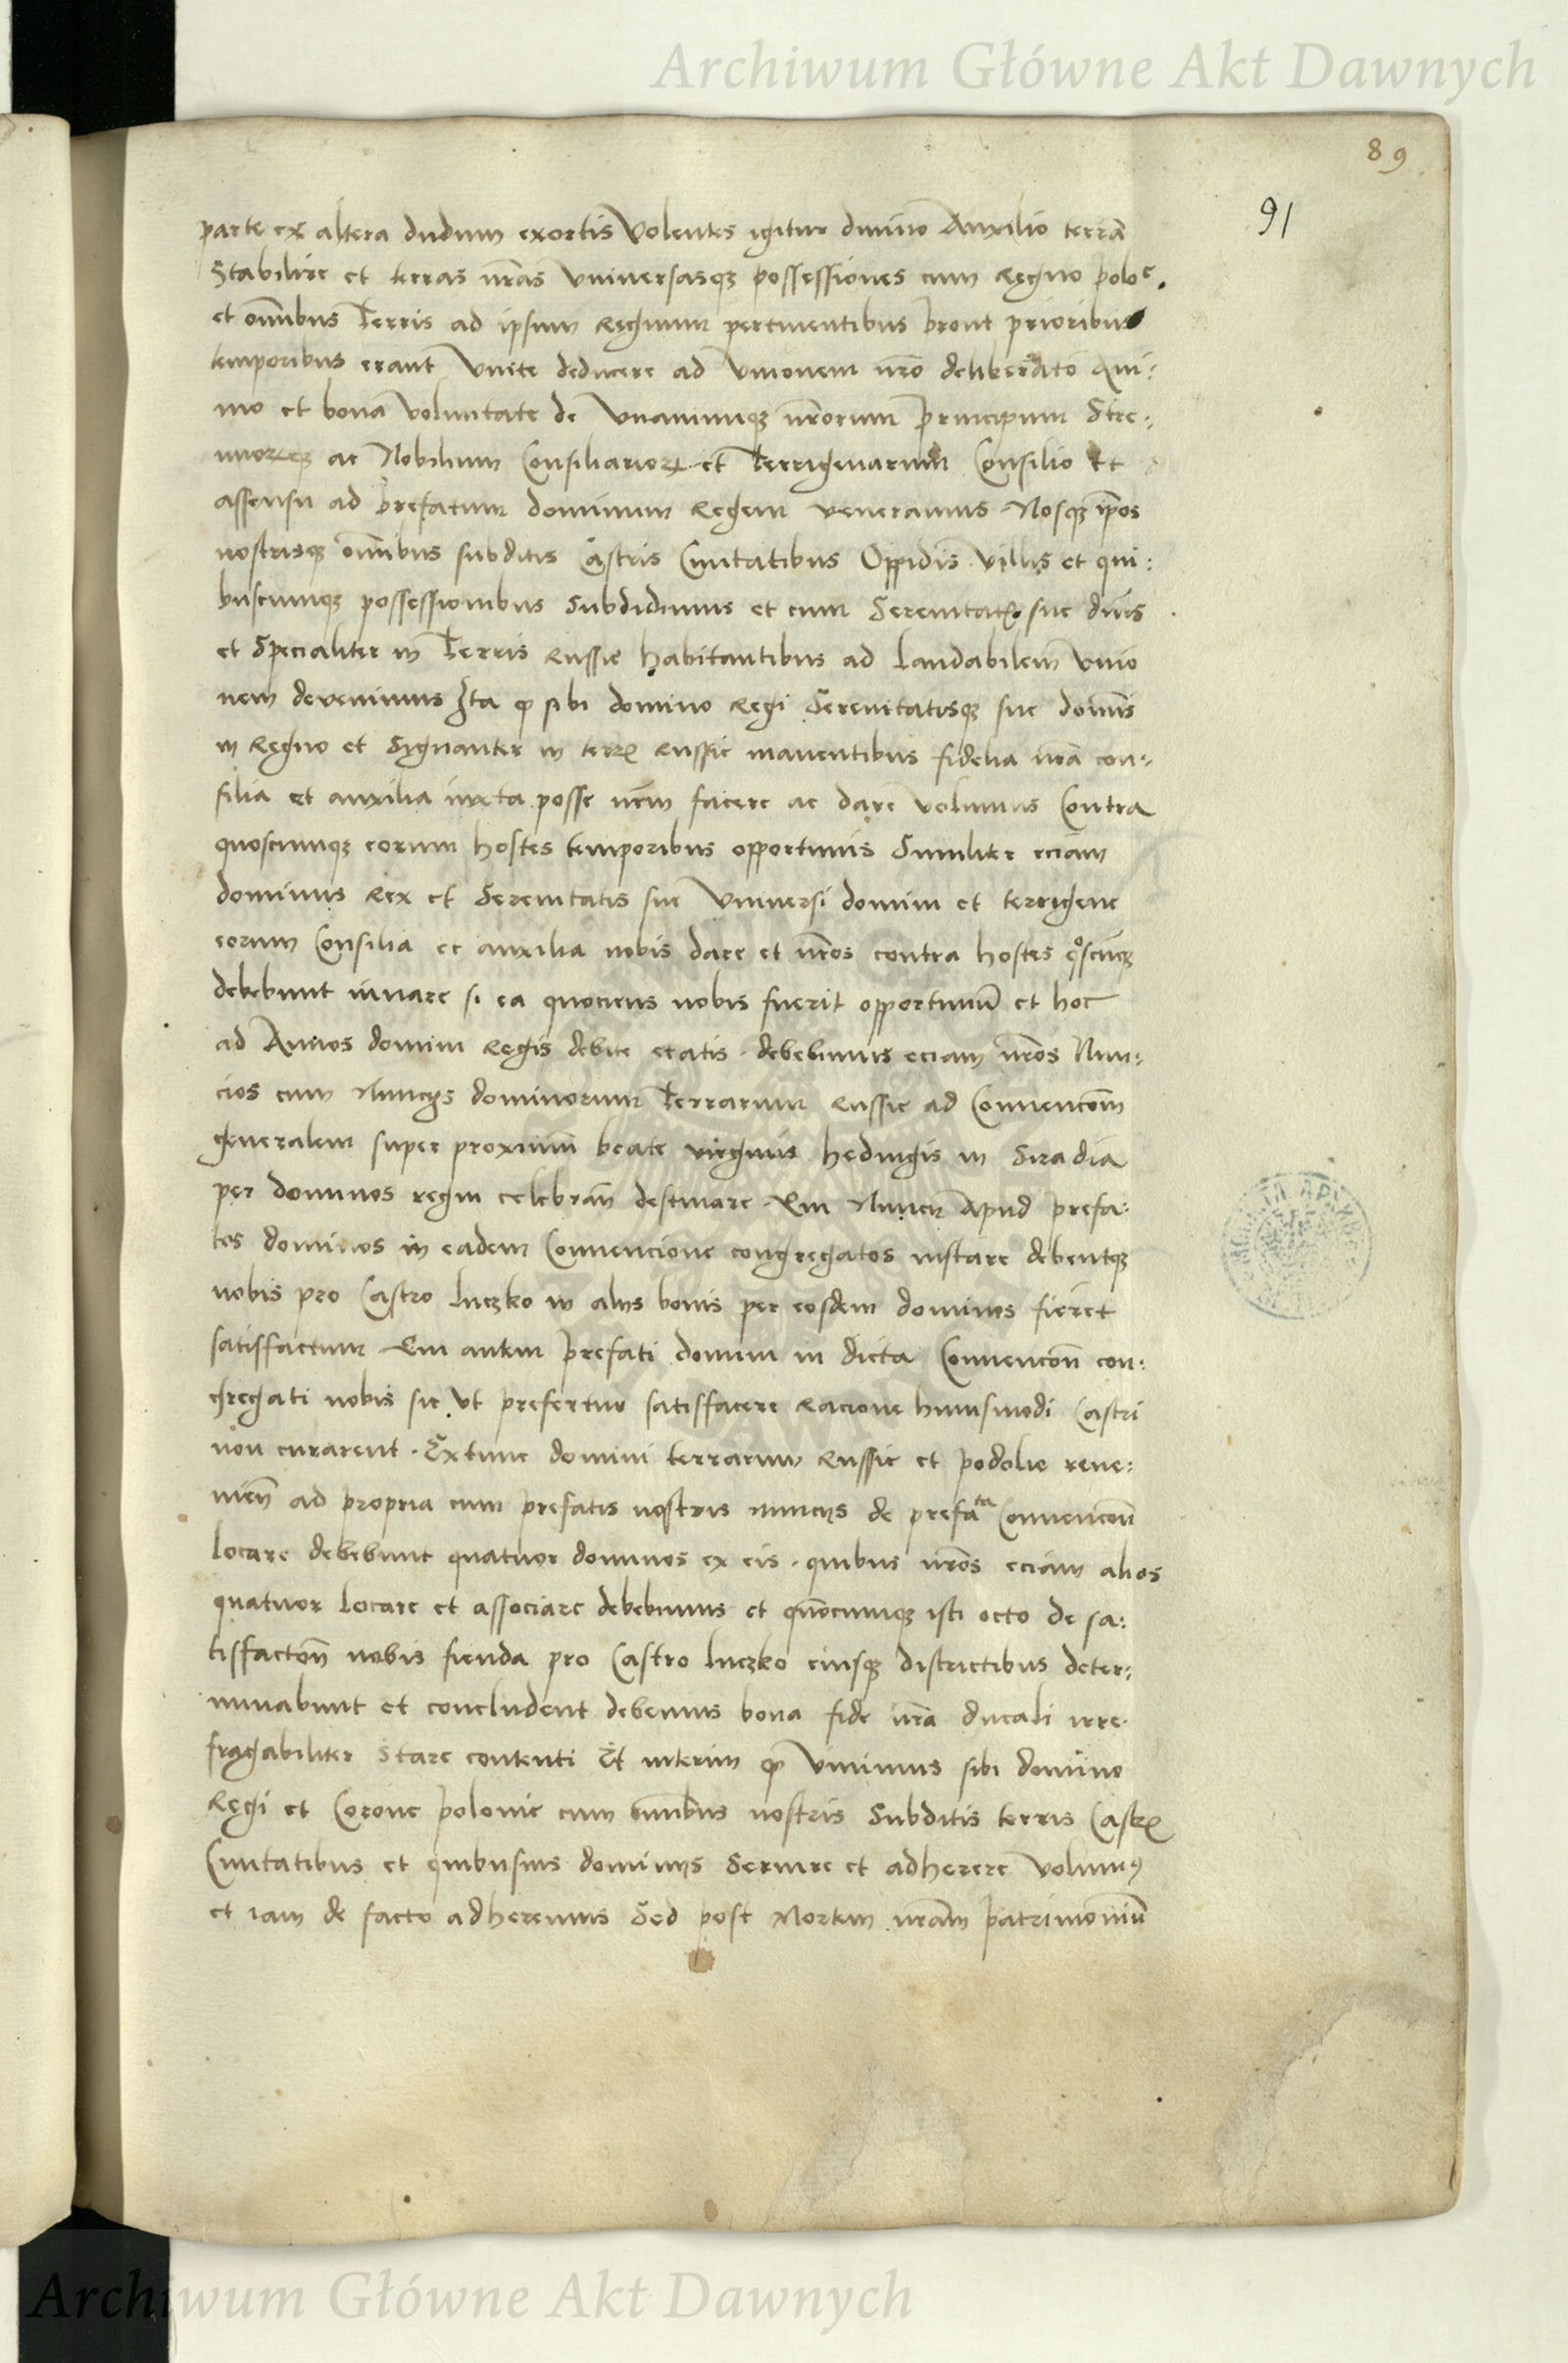 Archiwum Główne Akt Dawnych
89
91
parte ex altera dudum exortis Volentes igitur diuino Auxilio terrā
Stabilire et terras nr̄as vniuersasqȝ possessiones cum Regno polo͛.
et om̄ibus Terris ad ipsum Regnum pertinentibus prout prioribus
temporibus erant vnite deducere ad vnionem nr̄o deliberato Ani:
mo et bona voluntate de vnanimiqȝ nr̄orum principum Stre:
nuorꝝqȝ ac Nobilium Consiliariorꝝ et Terrigenarum Consilio Et
assensu ad prefatum dominum Regem veneramus Nosqȝ ip̄os
nostrisqȝ om̄ibus subditis Castris Ciuitatibus Oppidis villis et qui:
buscumqȝ possessionibus Subdidimus et cum Serenitatꝭ sue dn̄is
et Specialiter in Terris Russie habitantibus ad laudabilem vnio
nem deuenimus Ita ꝙ sibi domino Regi Serenitatisqȝ sue domīs
in Regno et Signanter in terrꝭ Russie manentibus fidelia nr̄a con:
silia et auxilia iuxta posse nr̄m facere ac dare volumus Contra
quoscumqȝ eorum hostes temporibus opportunis Similiter eciam
dominus Rex et Serenitatis sue vniuersi domini et terrigene
eorum Consilia et auxilia nobis dare et nr̄os contra hostes qoscūqȝ
debebunt iuuare si ea quociens nobis fuerit opportunū et hoc
ad Annos domini Regis debite etatis. debebimus eciam nr̄os Nun:
cios cum Nuncys dominorum Terrarum Russie ad Conuencōm
generalem super proximū beate virginis hedwigis in Siradia
per dominos regni celebran̄ destinare. Qui Nuncii Apud prefa:
tos dominos in eadem Conuencione congregatos instare debentqȝ
nobis pro Castro luczko in alys bonis per eosdem dominos fieret
satisfactum Qui autem prefati domini in dicta Conuencōn con:
gregati nobis sic vt prefertur satisfacere Racione huiusmodi Castri
non curarent. Extunc domini terrarum Russie et podolie reue:
nien̄ ad propria cum prefatis nostris nuncys de prefata Conuencōn
locare debebunt quatuor dominos ex eis. quibus nr̄os eciam alios
quatuor locare et associare debebimus et qn̄ocumqȝ isti octo de sa:
tisfactōn nobis fienda pro Castro luczko eiusqȝ districtibus deter:
minabunt et concludent debemus bona fide nr̄a ducali irre.
fragabiliter Stare contenti Et interim ꝙ viuimus sibi domino
Regi et Corone polonie cum om̄ibus nostris Subditis terris Castrꝭ
Ciuitatibus et quibusuis dominys Seruire et adherere volumꝰ
et iam de facto adheremus Sed post Mortem nr̄am patrimoniū
Archiwum Główne Akt Dawnych